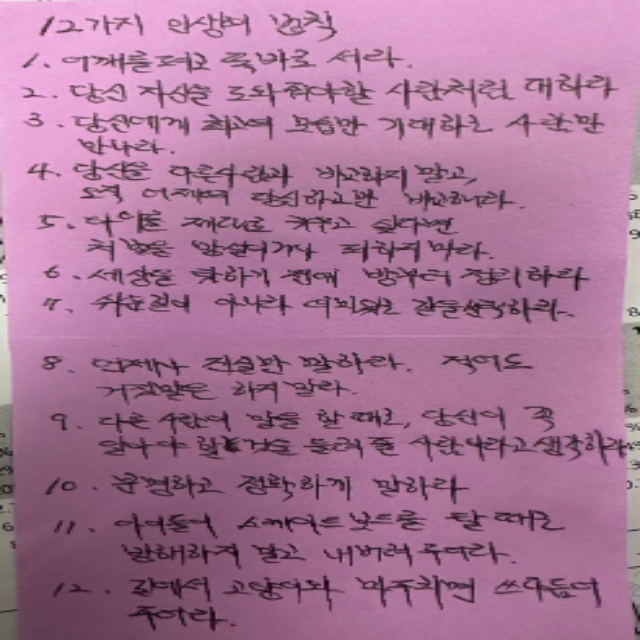 12가지 인생의 법칙
1. 어깨를 펴고 똑바로 서라.
2. 당신 자신을 도와줘야 할 사람처럼 대하라
3. 당신에게 최고의 모습만 기대하는 사람만
만나라.
4. 당신을 다른사람과 비교하지 말고,
오직 어제의 당신하고만 비교하라.
5. 아이를 제대로 키우고 싶다면
처벌을 망설이거나 피하지마라.
6. 세상을 탓하기 전에 방부터 정리하라
7. 쉬운길이 아니라 의미있는 길을선택하라.
8. 언제나 진실만 말하라. 적어도
거짓말은 하지말라.
9. 다른 사람이 말을 할 때는, 당신이 꼭
알아야 할 것을 들려줄 사람이라고생각하라
10. 분명하고 정확하게 말하라
11. 아이들이 스케이트보드를 탈 때는
방해하지 말고 내버려 두어라.
12. 길에서 고양이와 마주치면 쓰다듬어
주어라.